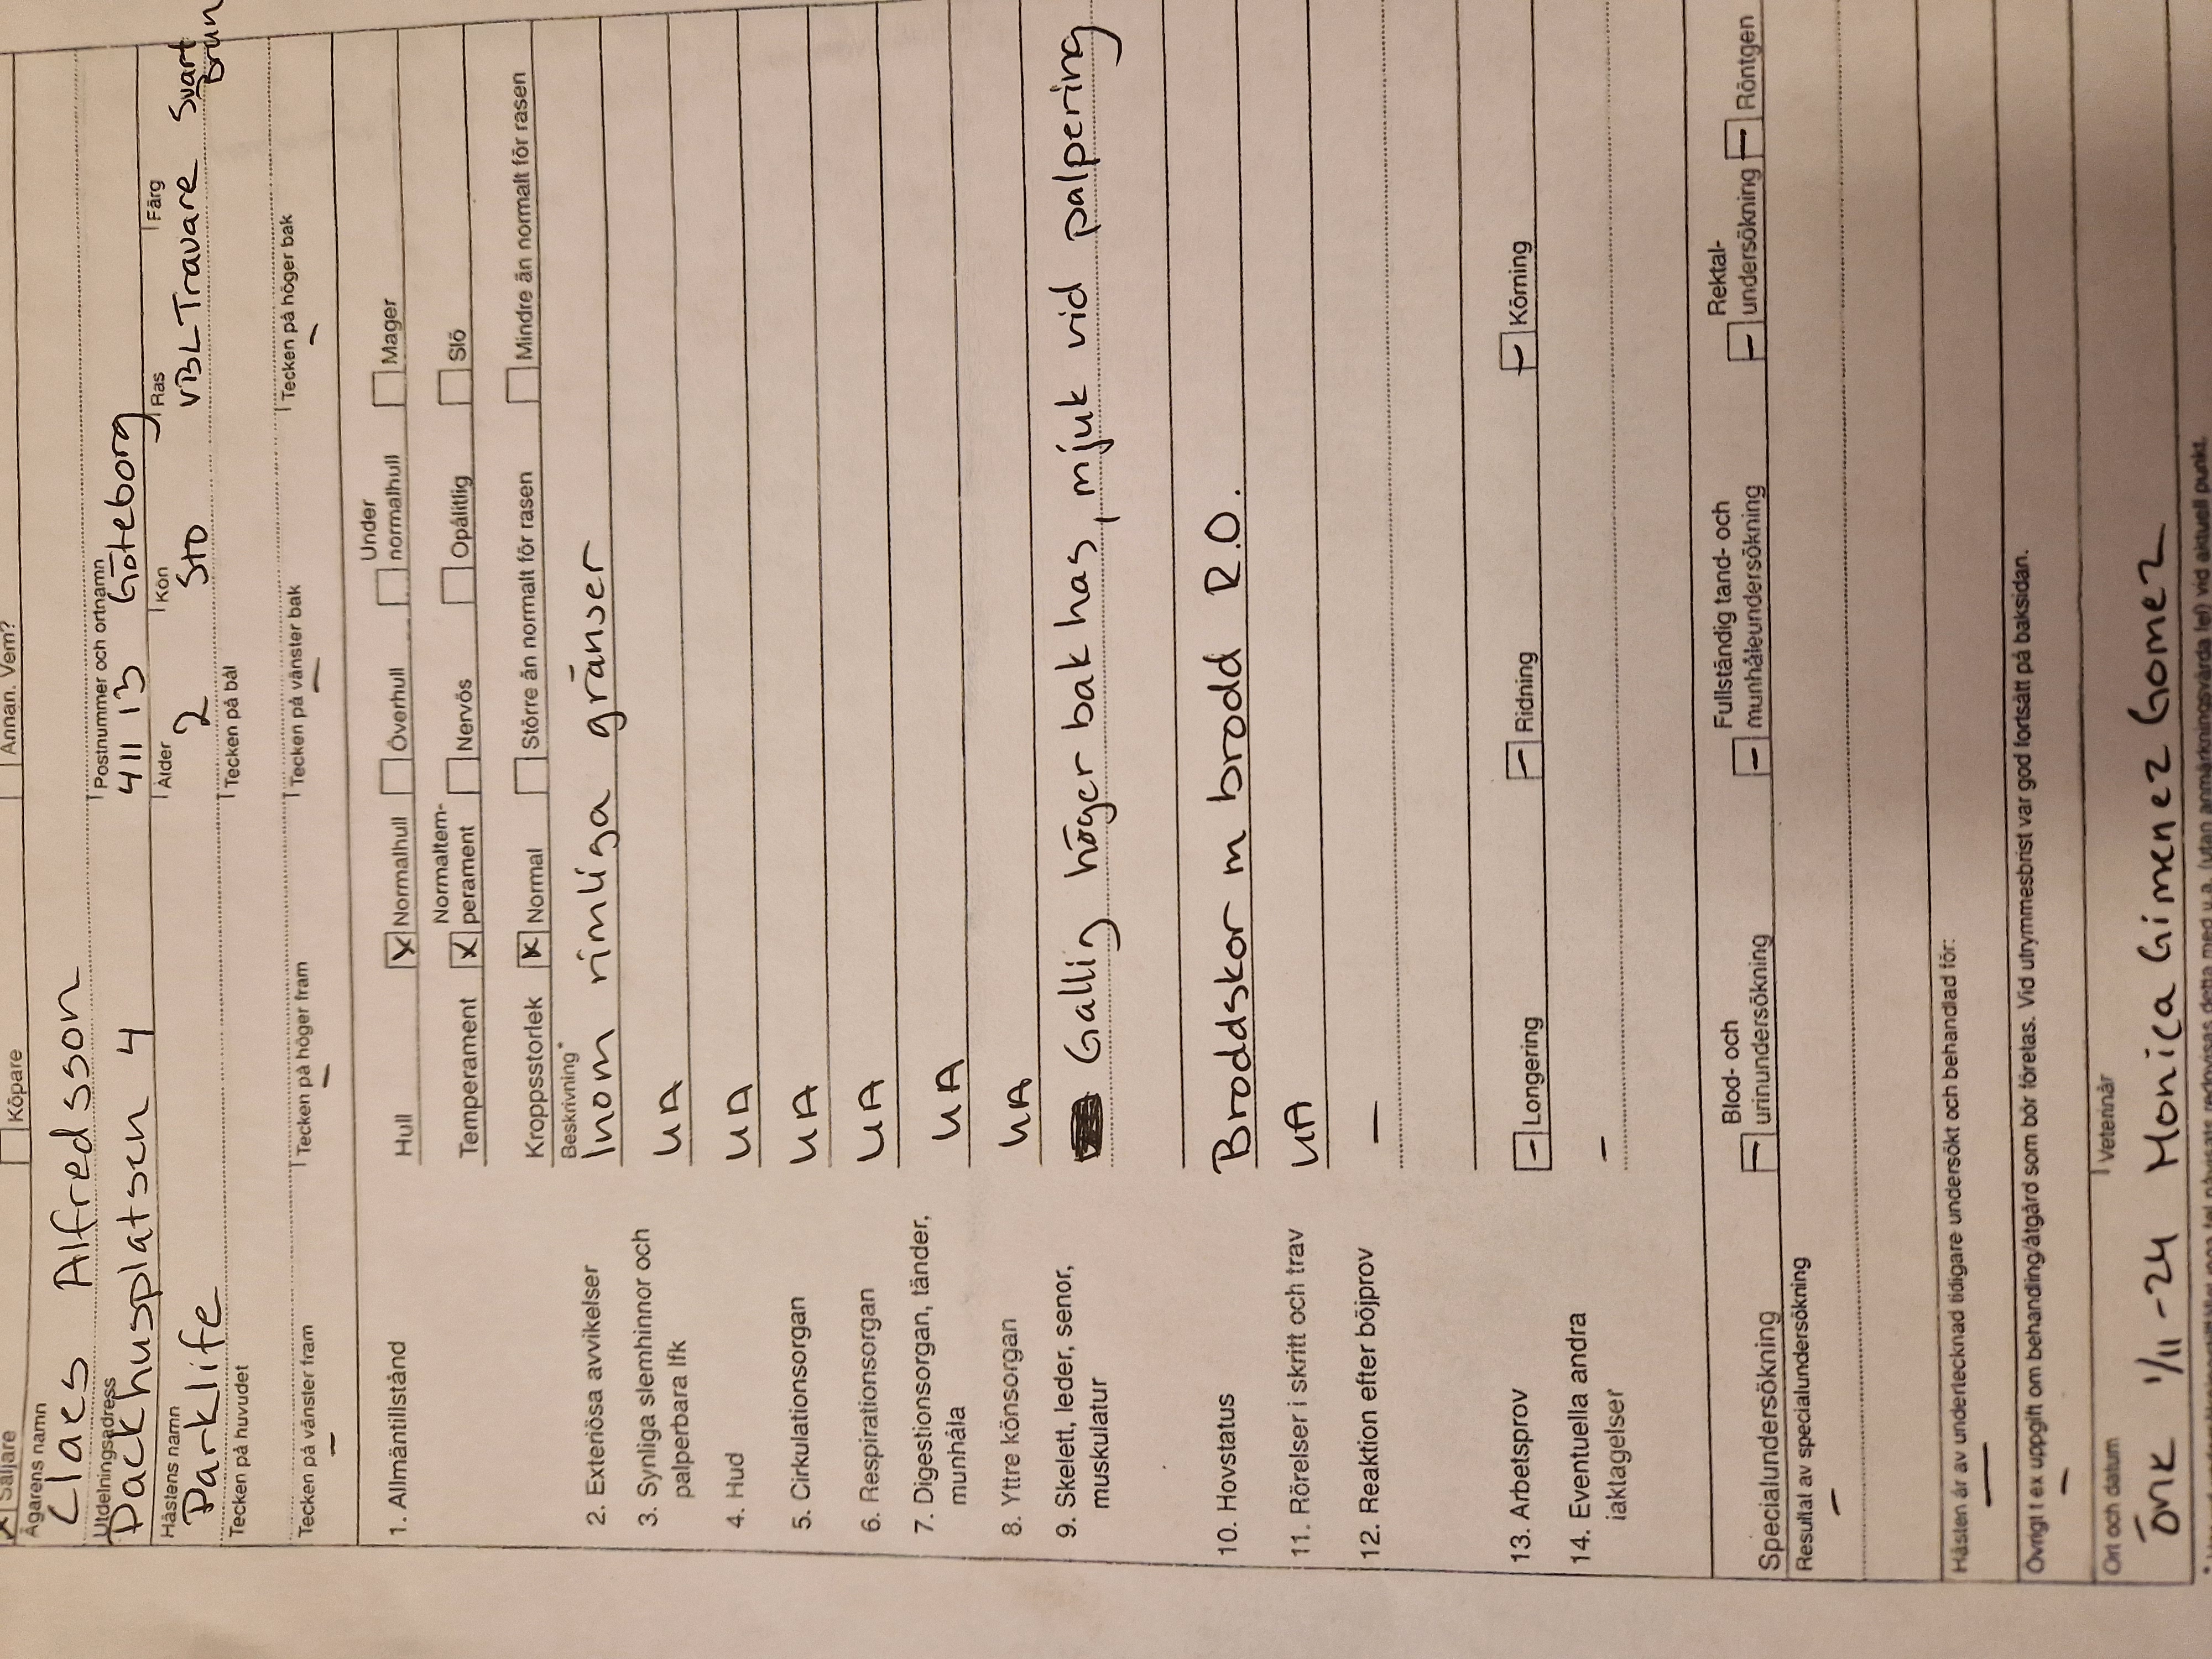 Säljare Köpare Annan. Vem?
Ägarens namn
Claes Alfredsson
Utdelningsadress Postnummer och ortnamn
Packhusplatsen 4 411 13 Göteborg
Hästens namn Ålder Kön Ras Färg
Parklife 2 Sto VBL Travare Svart
Brun
Tecken på huvudet Tecken på bål
Tecken på vänster fram Tecken på höger fram Tecken på vänster bak Tecken på höger bak
- - - -
1. Allmäntillstånd Hull X Normalhull Överhull Under normalhull Mager
Temperament X Normaltem-perament Nervös Opålitlig Slö
Kroppsstorlek X Normal Större än normalt för rasen Mindre än normalt för rasen
Beskrivning*
2. Exteriösa avvikelser Inom rimliga gränser
3. Synliga slemhinnor och UA
palperbara lfk
4. Hud UA
5. Cirkulationsorgan UA
6. Respirationsorgan UA
7. Digestionsorgan, tänder, UA
munhåla
8. Yttre könsorgan UA
9. Skelett, leder, senor, Gallig höger bak has, mjuk vid palpering
muskulatur
10. Hovstatus Broddskor m brodd R.O.
11. Rörelser i skritt och trav UA
12. Reaktion efter böjprov -
13. Arbetsprov - Longering - Ridning - Körning
14. Eventuella andra -
iakttagelser
Specialundersökning - Blod- och urinundersökning - Fullständig tand- och munhåleundersökning - Rektal-undersökning - Röntgen
Resultat av specialundersökning
-
Hästen är av undertecknad tidigare undersökt och behandlad för:
-
Övrigt t ex uppgift om behandling/åtgärd som bör företas. Vid utrymmesbrist var god fortsätt på baksidan.
-
Ort och datum Veterinär
ÖNK 1/11-24 Monica Gimenez Gomez